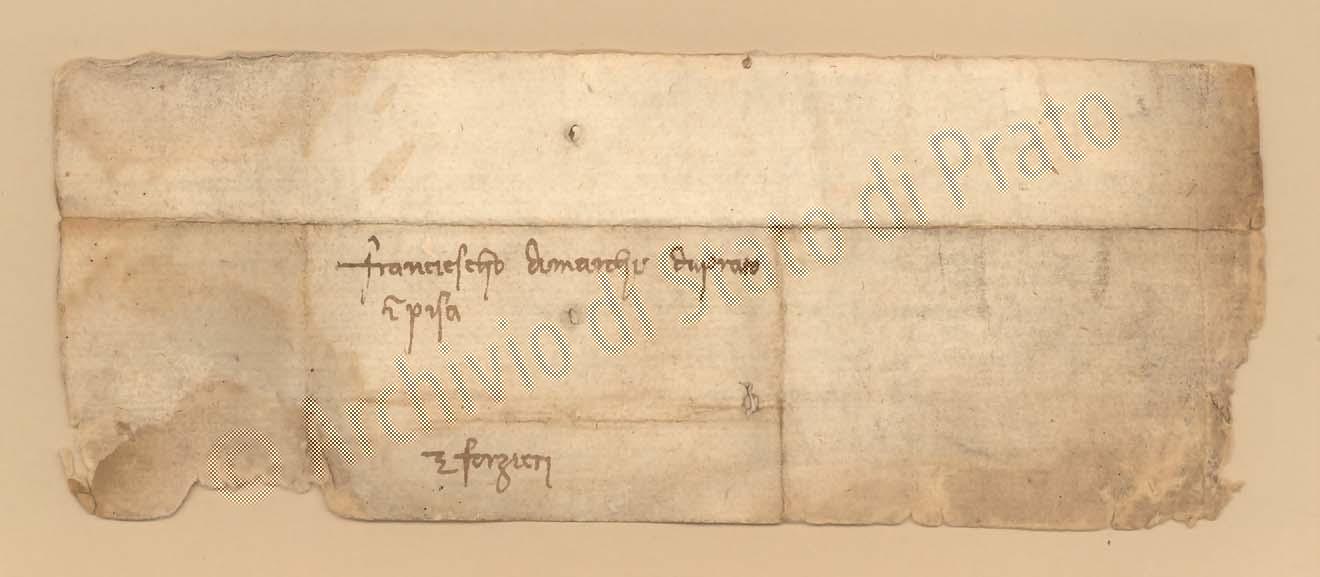 Franciescho di marcho da prato
in pisa
forzieri
© Archivio di Stato di Prato